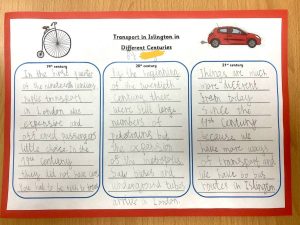 Transport in Islington in
Different Centuries
19th century
In the first quarter
of the nineteenth century
public transport
in London was
expensive and
offered passengers
little choice. In the
19th century
they did not have cars
20th century
By the beginning
of the twentieth
century there
were still large
numbers
but the expansion
of the
buses and
underground tubes
arrive in London.
21st century
Things are much
more different
from today
since the
19th century
because we
have more ways
of transport and
we have 60 bus
routes in Islington